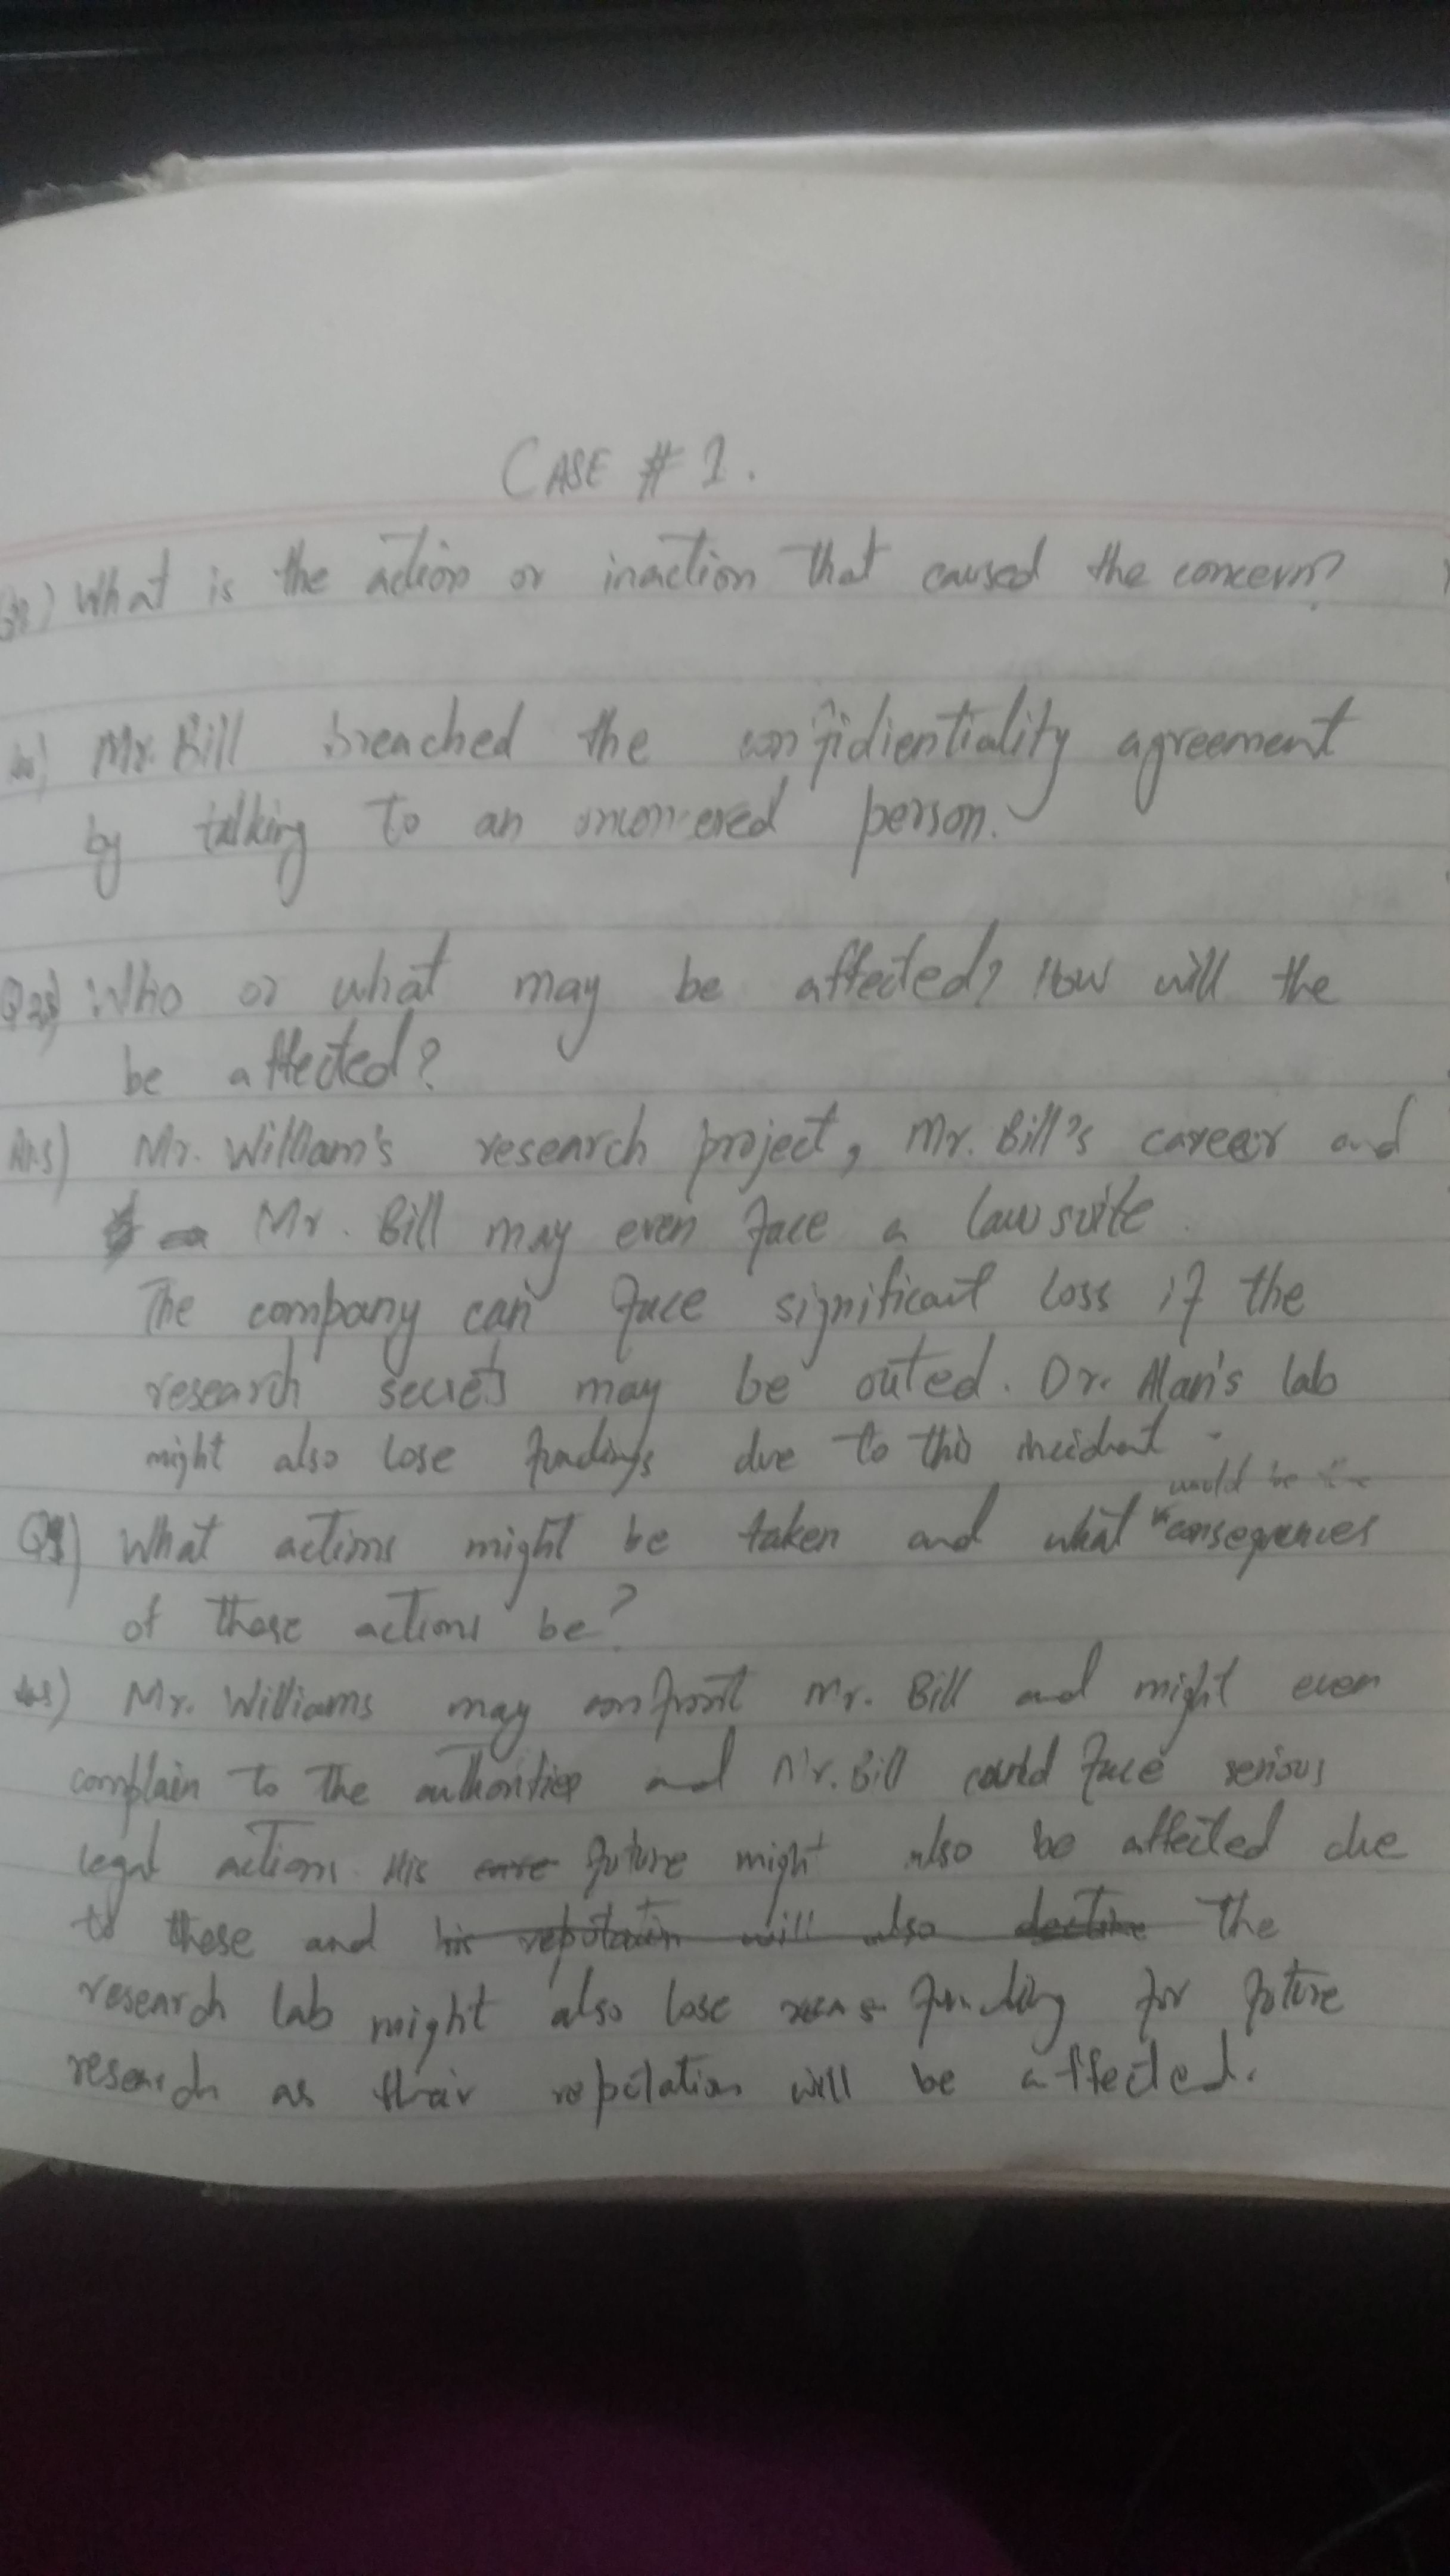 CASE # 1.
What is the action or inaction that caused the concern?
Mr. Bill breached the confidientiality agreement
by talking to an person.
Who or what may be affected? How will the
be affected?
Ans) Mr. William's research project, Mr. Bill's career and
Mr. Bill may even face a lawsuite.
The company can face significant loss if the
research secrets may be outed. Dr. Alan's lab
might also lose fundings due to this incident.
would be the
What actions might be taken and what consequences
of these actions be?
Ans) Mr. Williams may confront Mr. Bill and might even
complain to the authorities and Mr. Bill could face serious
legal actions. His future might also be affected due
to these and his reputation will also decline the
research lab might also lose funding for future
research as their reputation will be affected.